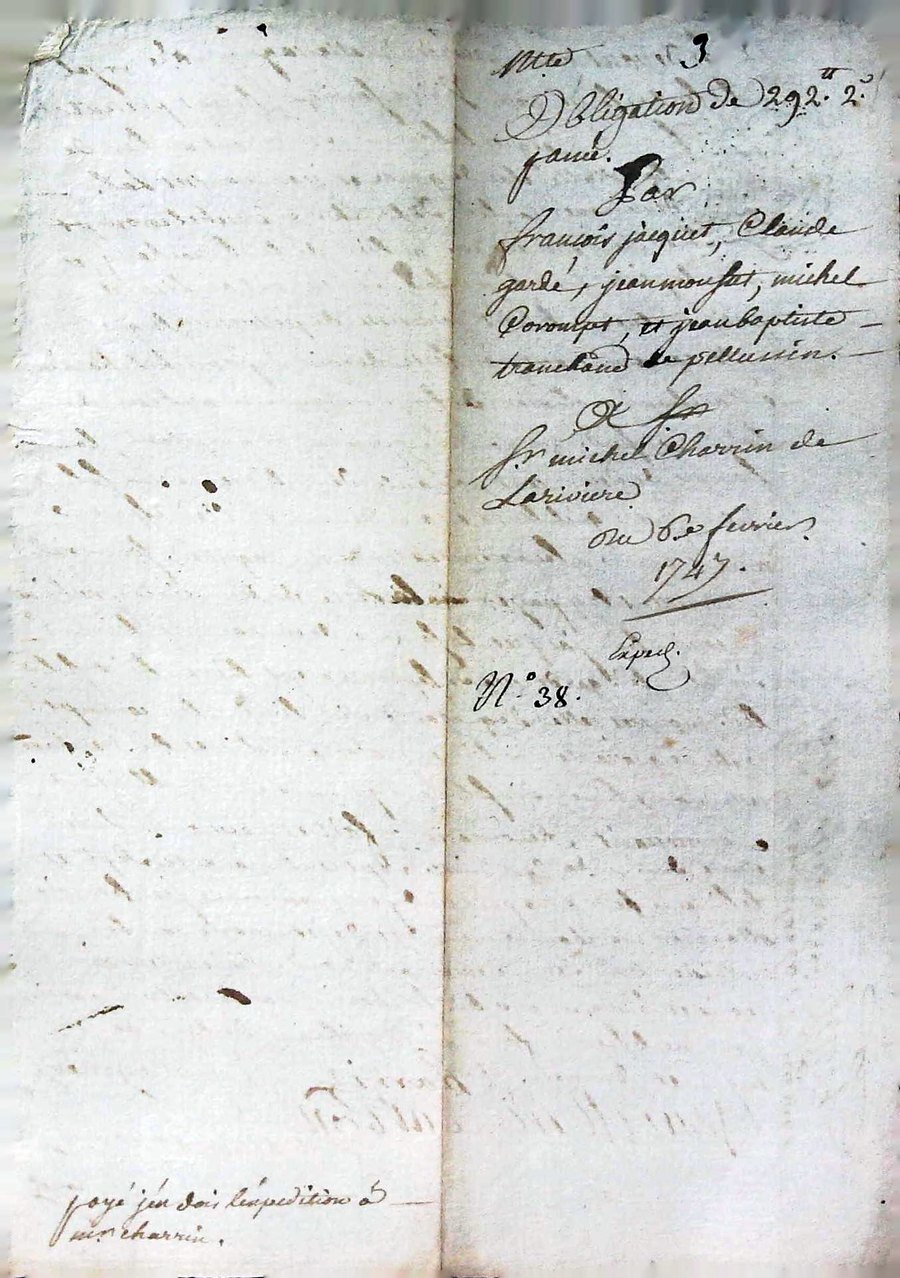 Mtte 3
Obligation de 292.ᵗᵗ 2.ˢ
passée.
Par
françois jacquet, Claude
gardé, jean mousset, michel
Corompt, et jean baptiste
tranchand de pellussin.
A Sr
Sr michel Charrin de
Lariviere
Du 6e fevrier
1747.
Exped.
N.° 38.
payé jen dois lexpedition a
mr charrin.